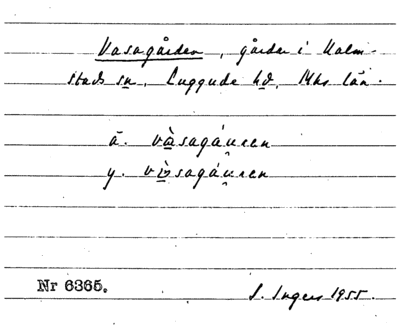 Vasagården, gårdar i Kalm-
stads sn, Luggude hd, Mhs län.
ä. vàsagáʋren
y. vàsagáʋren
Nr 6365.
I. Ingers 1955.